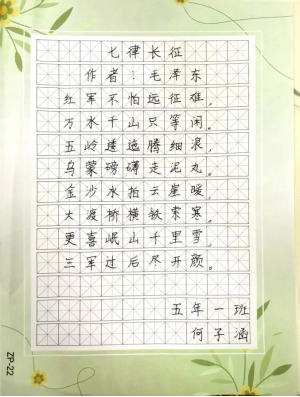 七律长征
作者：毛泽东
红军不怕远征难，
万水千山只等闲，
五岭逶迤腾细浪，
乌蒙磅礴走泥丸。
金沙水拍云崖暖，
大渡桥横铁索寒。
更喜岷山千里雪，
三军过后尽开颜。
五年一班
何子涵
ZP-22